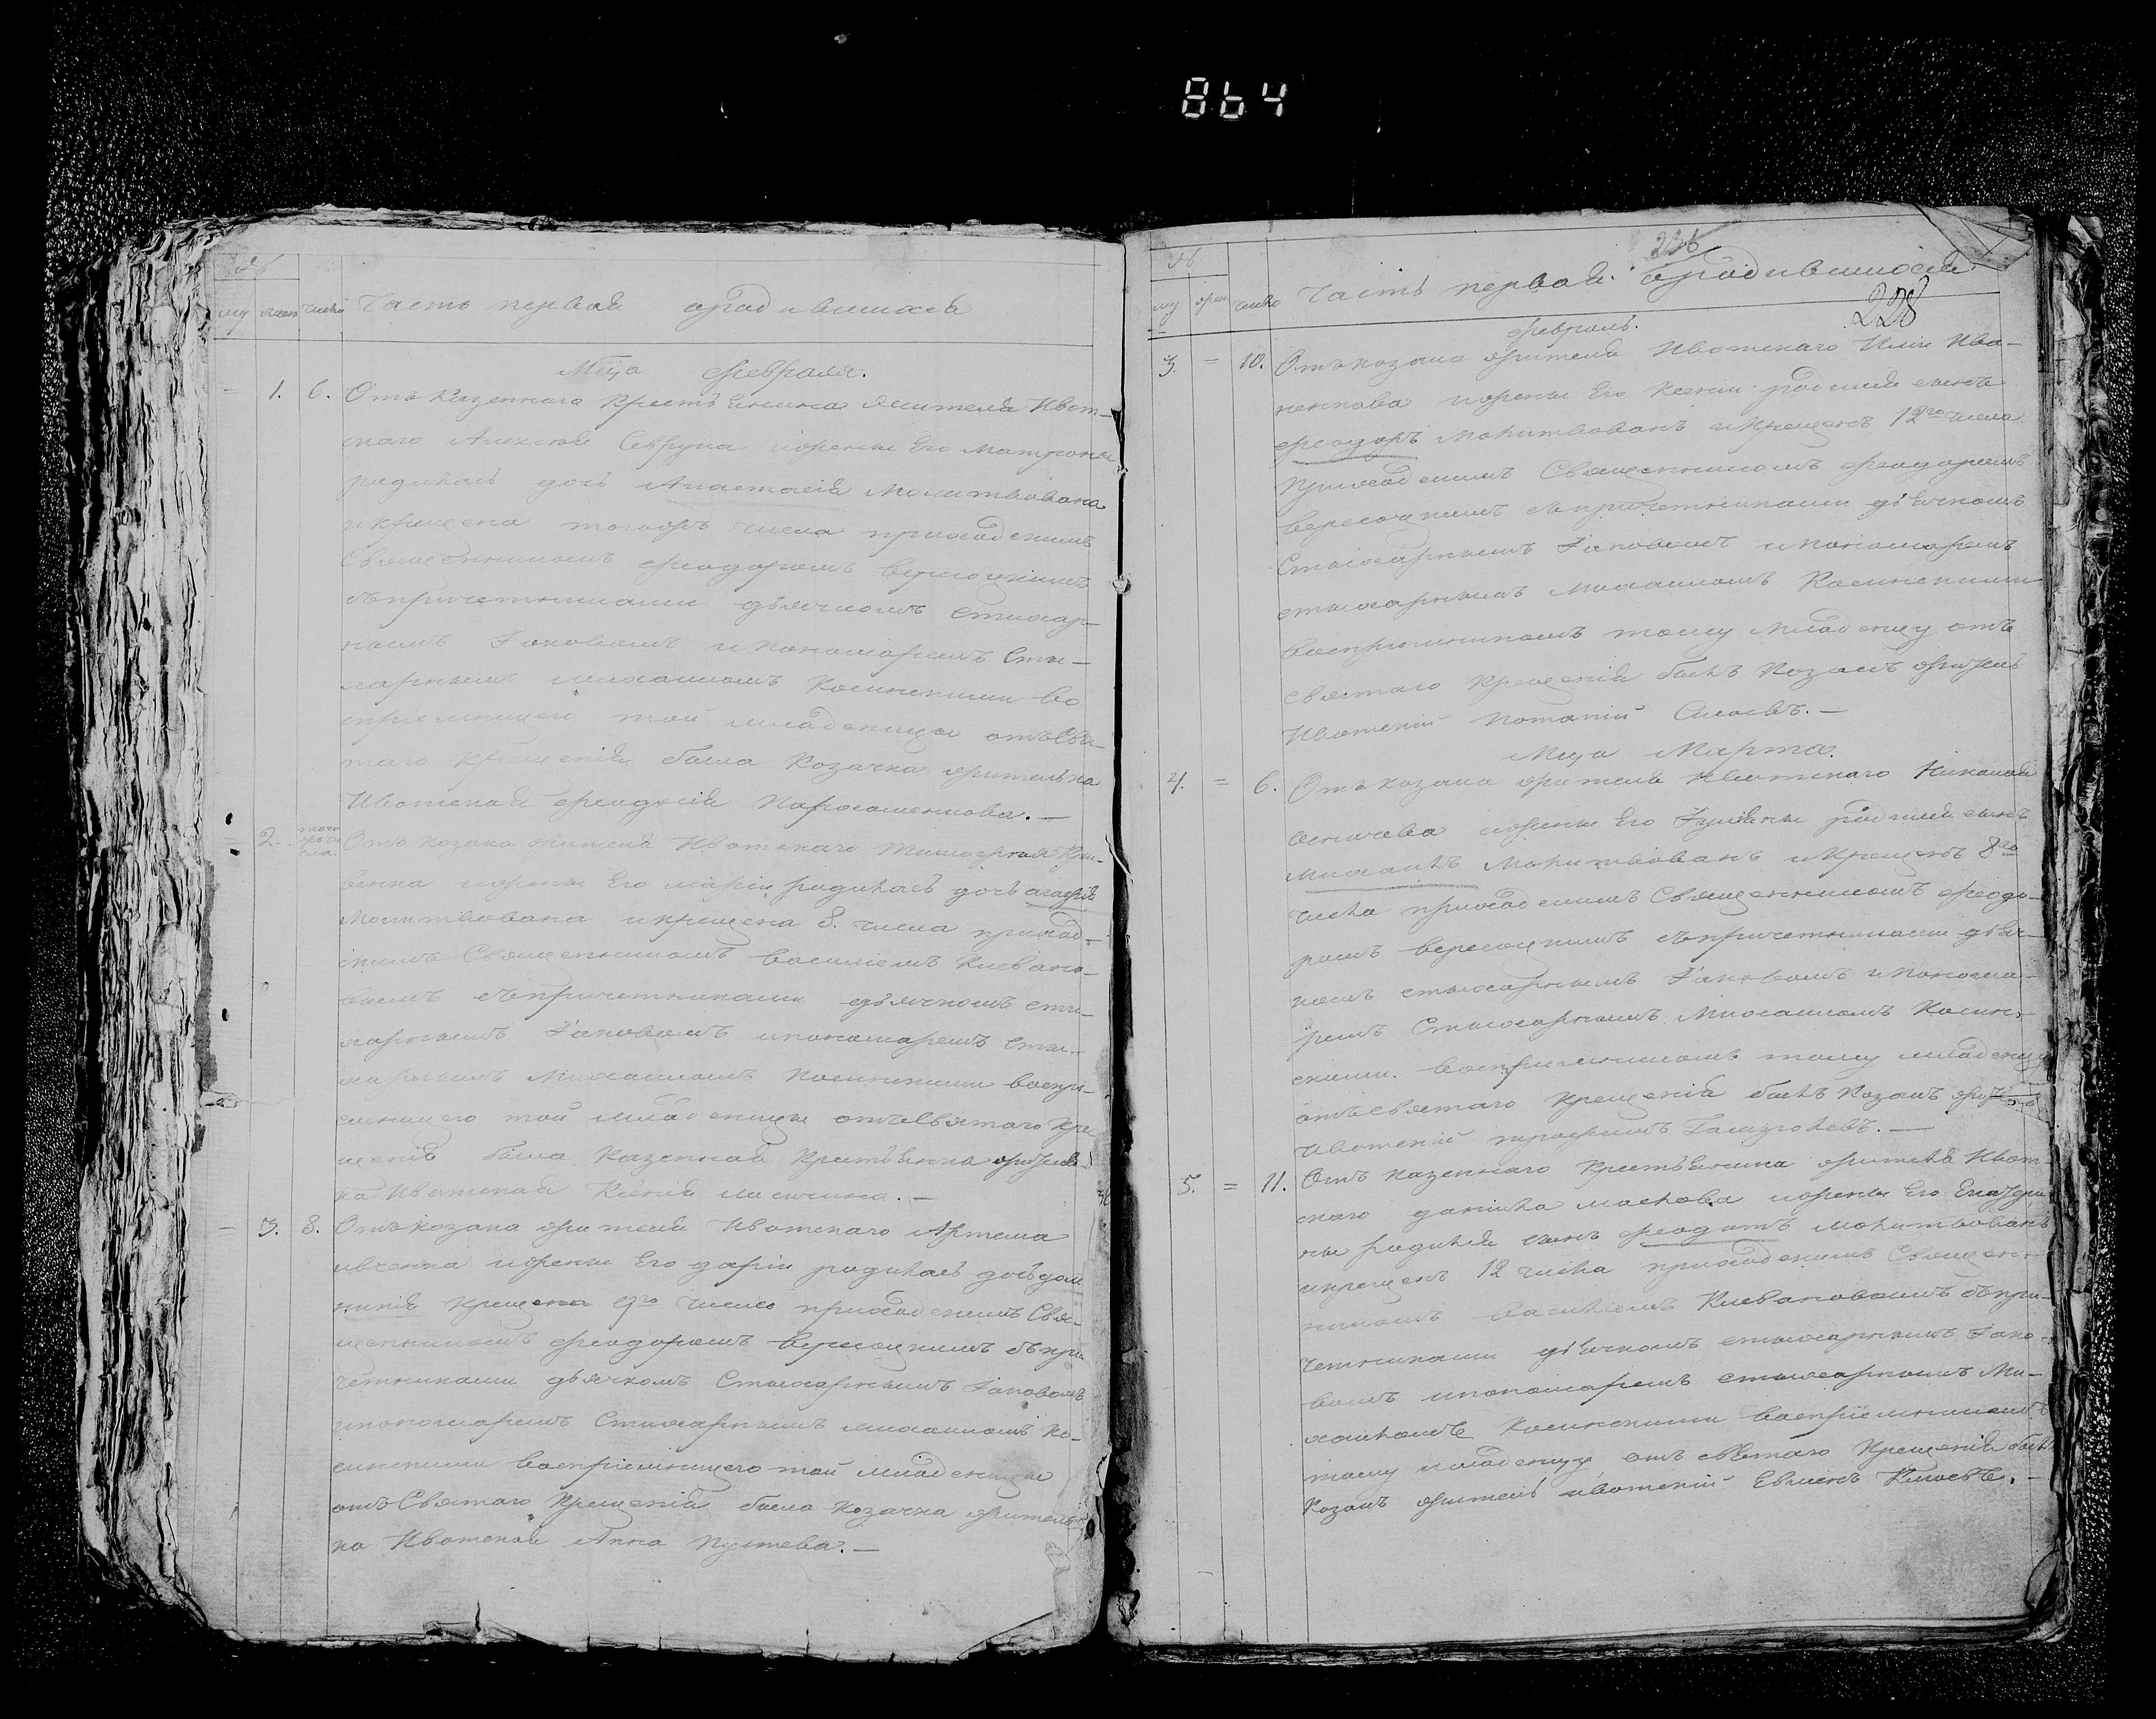 864
№
Часть первая ородившихся
му жен число
Мца февраля.
1. 6. Отъ Казеннаго Крестьянина жителя Ивот-
скаго Алексѣя Севрука ижены Его Матроны
родилась дочь Анастасія Молитвована
икрещена тогожъ числа приходскимъ
Священникомъ феодоромъ Вересоцкимъ
съпричетниками дьячкомъ Стихар-
нымъ Іаковомъ ипономаремъ Сти-
харнымъ Михаиломъ Косинскими во
спріемницею той младеницы отъ Свя-
таго Крещенія была Козачка жителька
Ивотская феодосія
2. того жъ чи сла Отъ Козака жителя Ивотскаго Тимофея Кри-
венка ижены Его Маріи родилась дочь агафія
Молитвована икрещена 8. числа приход-
скимъ Священникомъ Василіемъ Клевано-
вымъ съпричетниками дьячкомъ сти-
харнымъ Іаковомъ ипономаремъ Сти-
харнымъ Михаиломъ Косинскими воспрі-
емницею той младеницы отъ Святаго Кре
щенія была Казенная Крестьянка жителъ
ка Ивотская Ксенія
3. 8. Отъ козака жителя Ивотскаго Артема
ивченка ижены Его дарьи родилась дочь дом
никія Крещена 9го числа приходскимъ Свя-
щенникомъ феодоромъ Вересоцкимъ съпри
четниками дьячкомъ Стихарнымъ Іаковомъ
ипономаремъ Стихарнымъ михаиломъ Ко-
синскими Воспріемницею той младеницы
отъ Святаго Крещенія была Козачка житель
ка Ивотская Анна Пустева.
226
№
му жен число Часть первая ородившихся
228
февраль.
3. = 10. Отъ козака жителя Ивотскаго Иліи Ива-
ненкова ижены Его Ксеніи родился сынъ
феодоръ Молитвованъ икрещенъ 12го числа
Приходскимъ Священникомъ феодоромъ
Вересоцкимъ съпричетниками дьячкомъ
Стихарнымъ Іаковомъ ипономаремъ
стихарнымъ михаиломъ Косинскими
Воспріемникомъ тому младенцу отъ
святаго Крещенія былъ Козакъ житель
Ивотскій Потапій
Мца Марта.
4. = 6. Отъ козака жителя Ивотскаго Николая
ижены Его Іуліяны родился сынъ
михаилъ Молитвованъ икрещенъ 8го
числа приходскимъ Священникомъ феодо-
ромъ Вересоцкимъ съпричетниками дьяч-
комъ стихарнымъ Іаковомъ ипонома-
ремъ Стихарнымъ Михаиломъ Косин-
скими. Воспріемникомъ тому младенцу
отъ святаго Крещенія былъ Козакъ житель
Ивотскій трофимъ
5. = 11. Отъ казеннаго Крестьянина жителя Ивот-
скаго данила маслова ижены Его Екатери
ны родился сынъ феодотъ молитвованъ
икрещенъ 12 числа приходскимъ Священ-
никомъ василіемъ Клевановымъ съпри-
четниками дьячкомъ стихарнымъ Іако-
вомъ ипономаремъ стихарнымъ Ми-
хаиломъ Косинскими воспріемникомъ
тому младенцу отъ святаго Крещенія былъ
Козакъ житель ивотскій